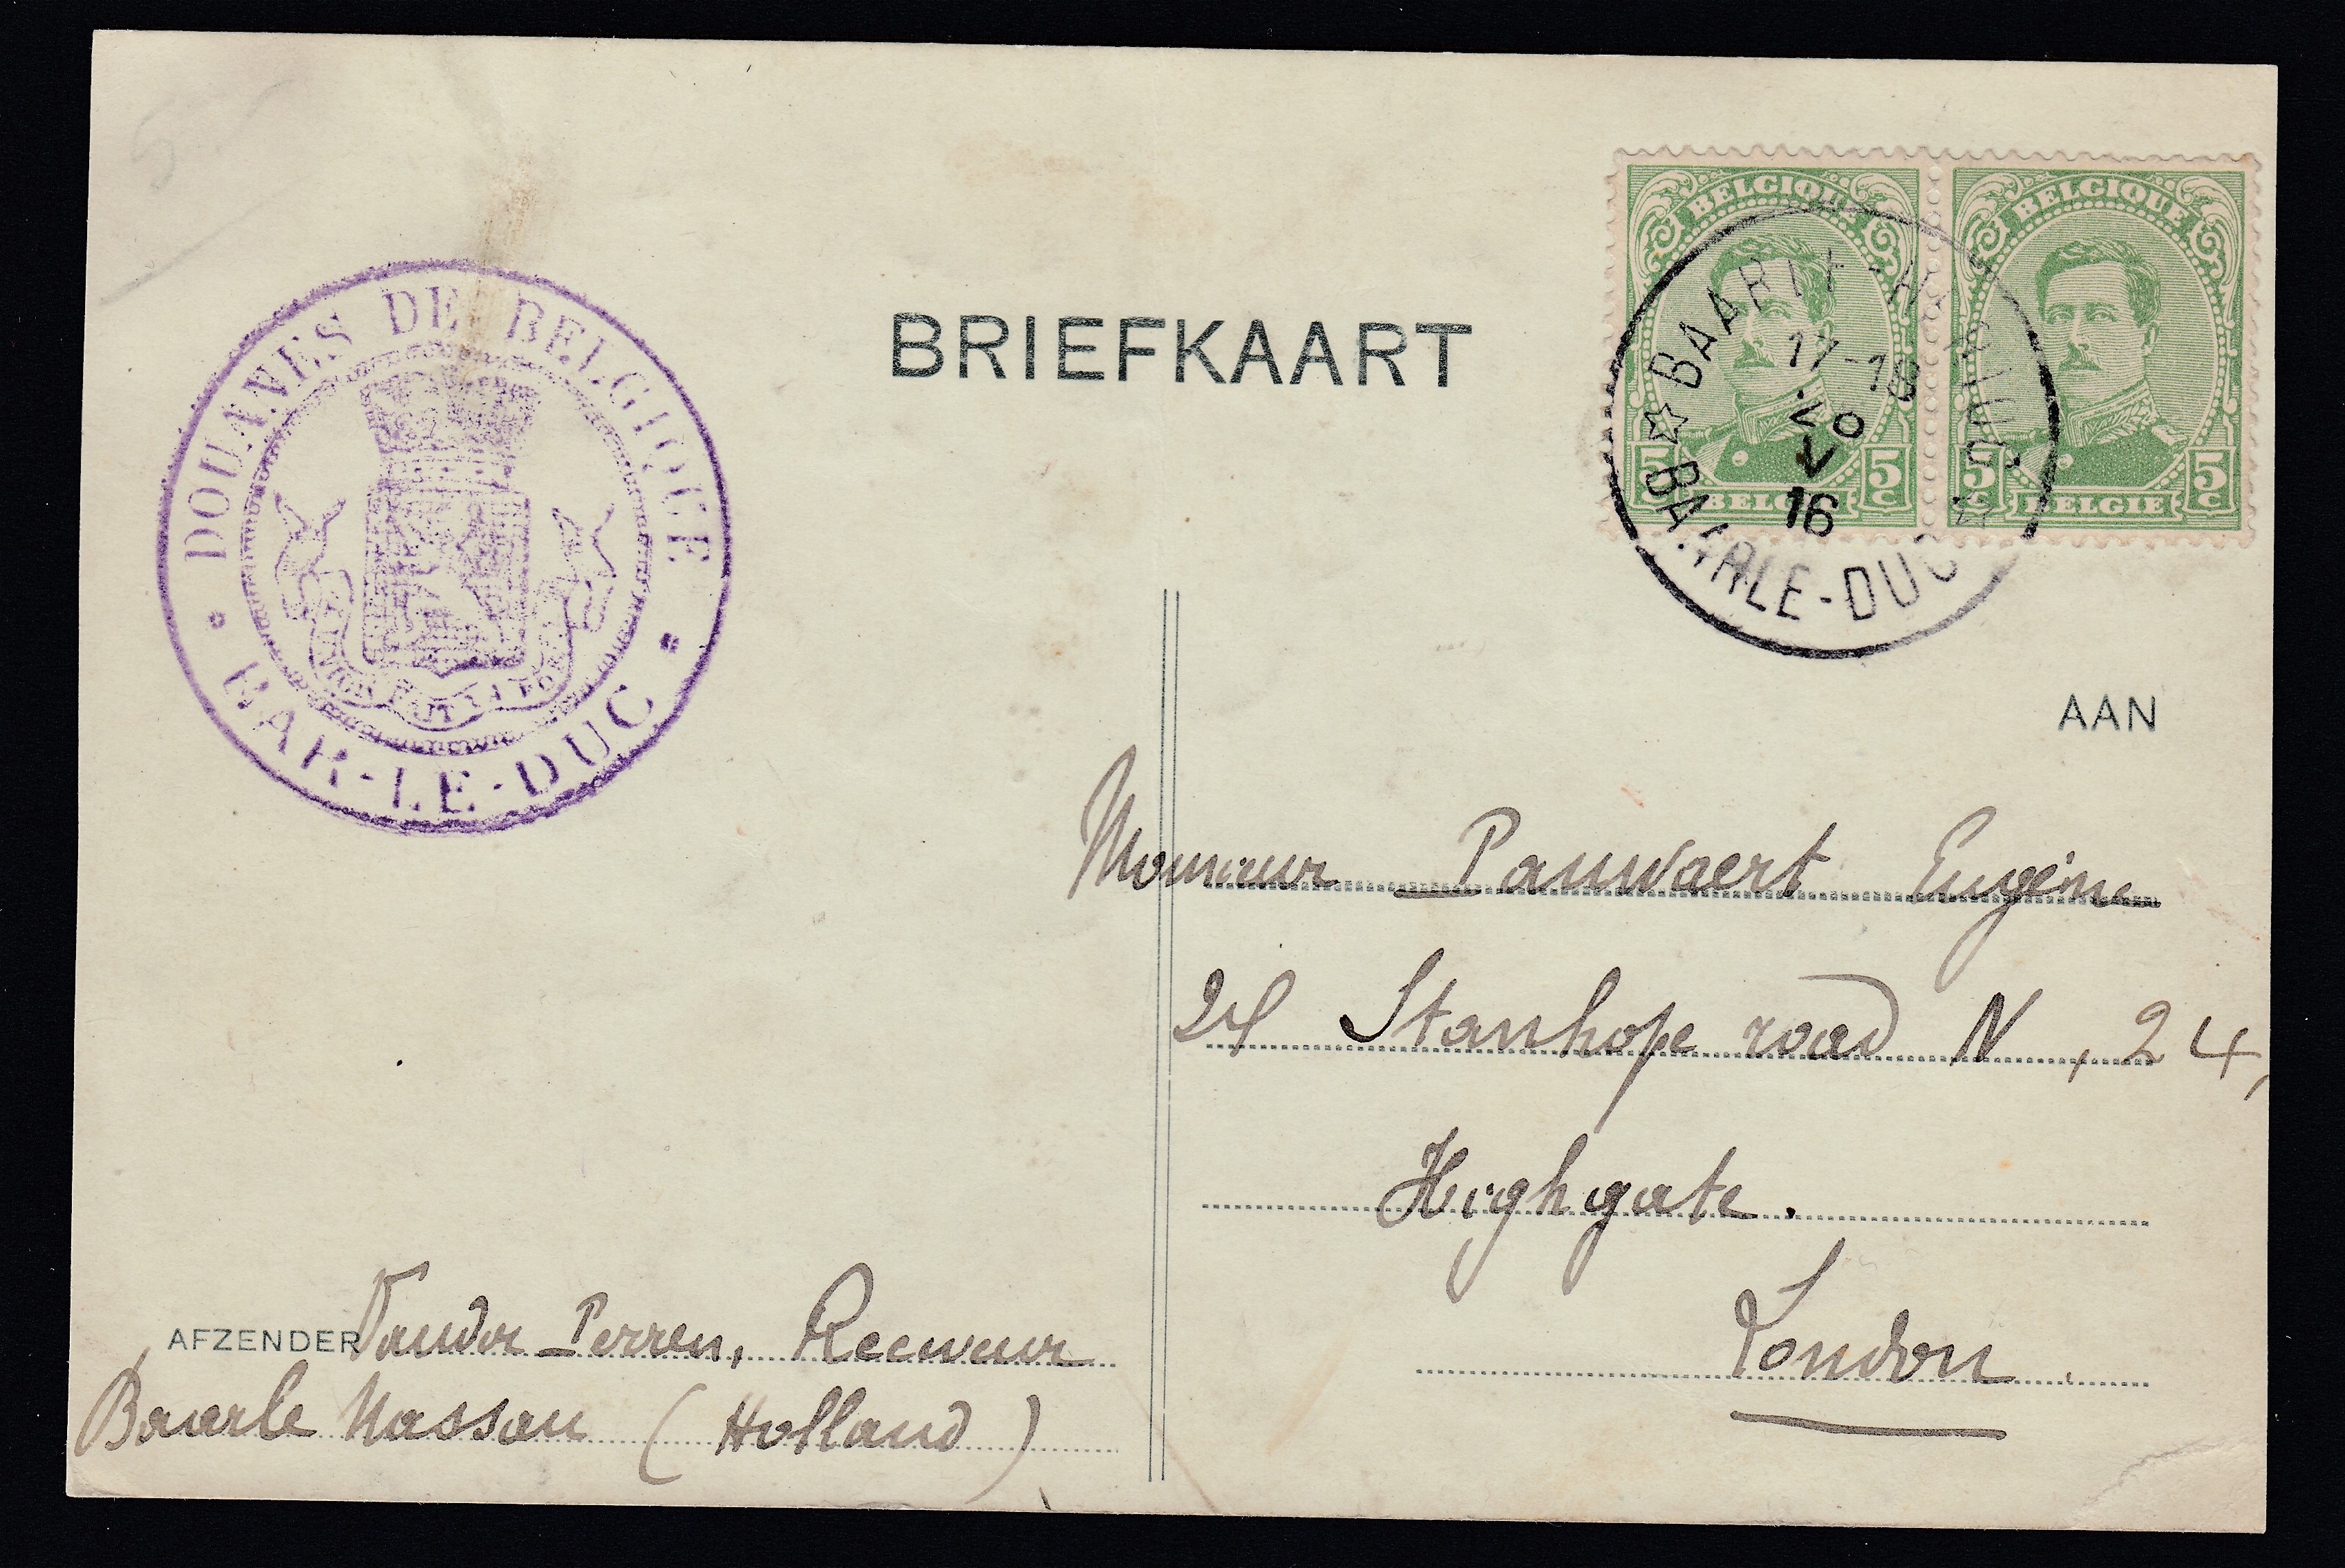 DOUANES DE BELGIQUE
BAR-LE-DUC
BRIEFKAART
BELGIQUE
5c 5c
BELGIE
BELGIQUE
5c 5c
BELGIE
BAARLE-
17-18
20
V
16
BAARLE-DUC
AAN
Monsieur Pauwaert Eugène
24 Stanhope road N, 24,
Highgate.
London
AFZENDER Vander Perren, Receveur
Baarle Nassau (Holland)